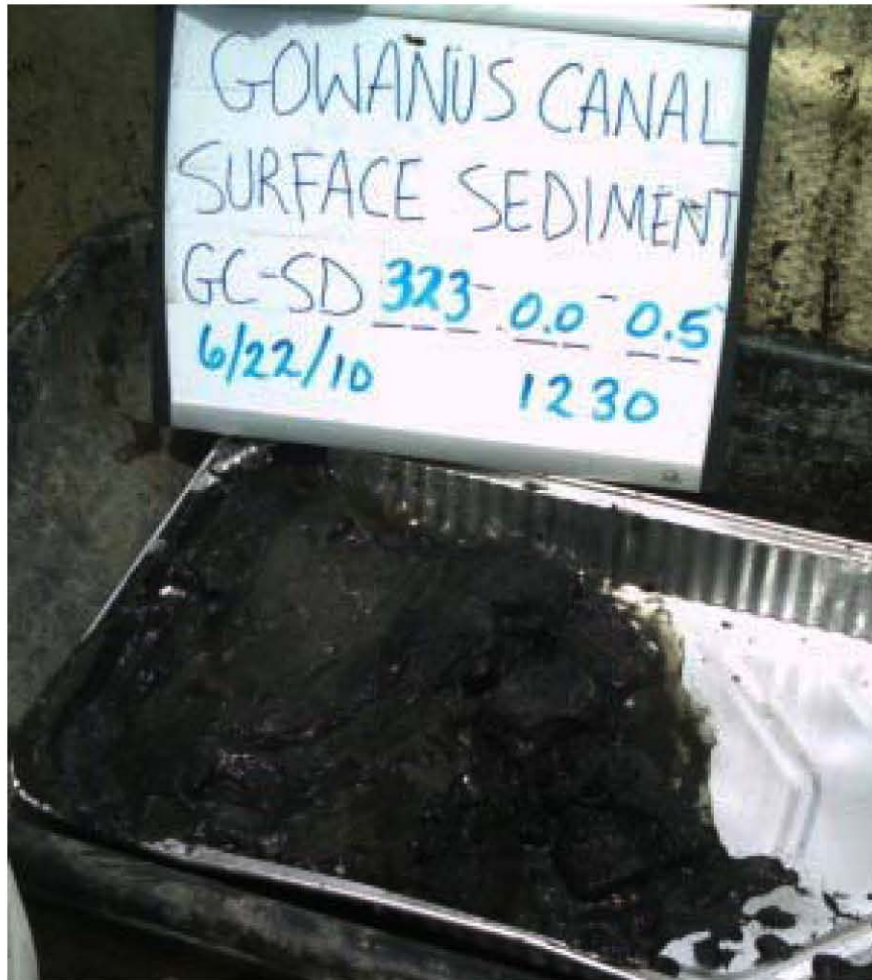 GOWANUS CANAL
SURFACE SEDIMENT
GC-SD 323-0.0-0.5'
6/22/10 1230